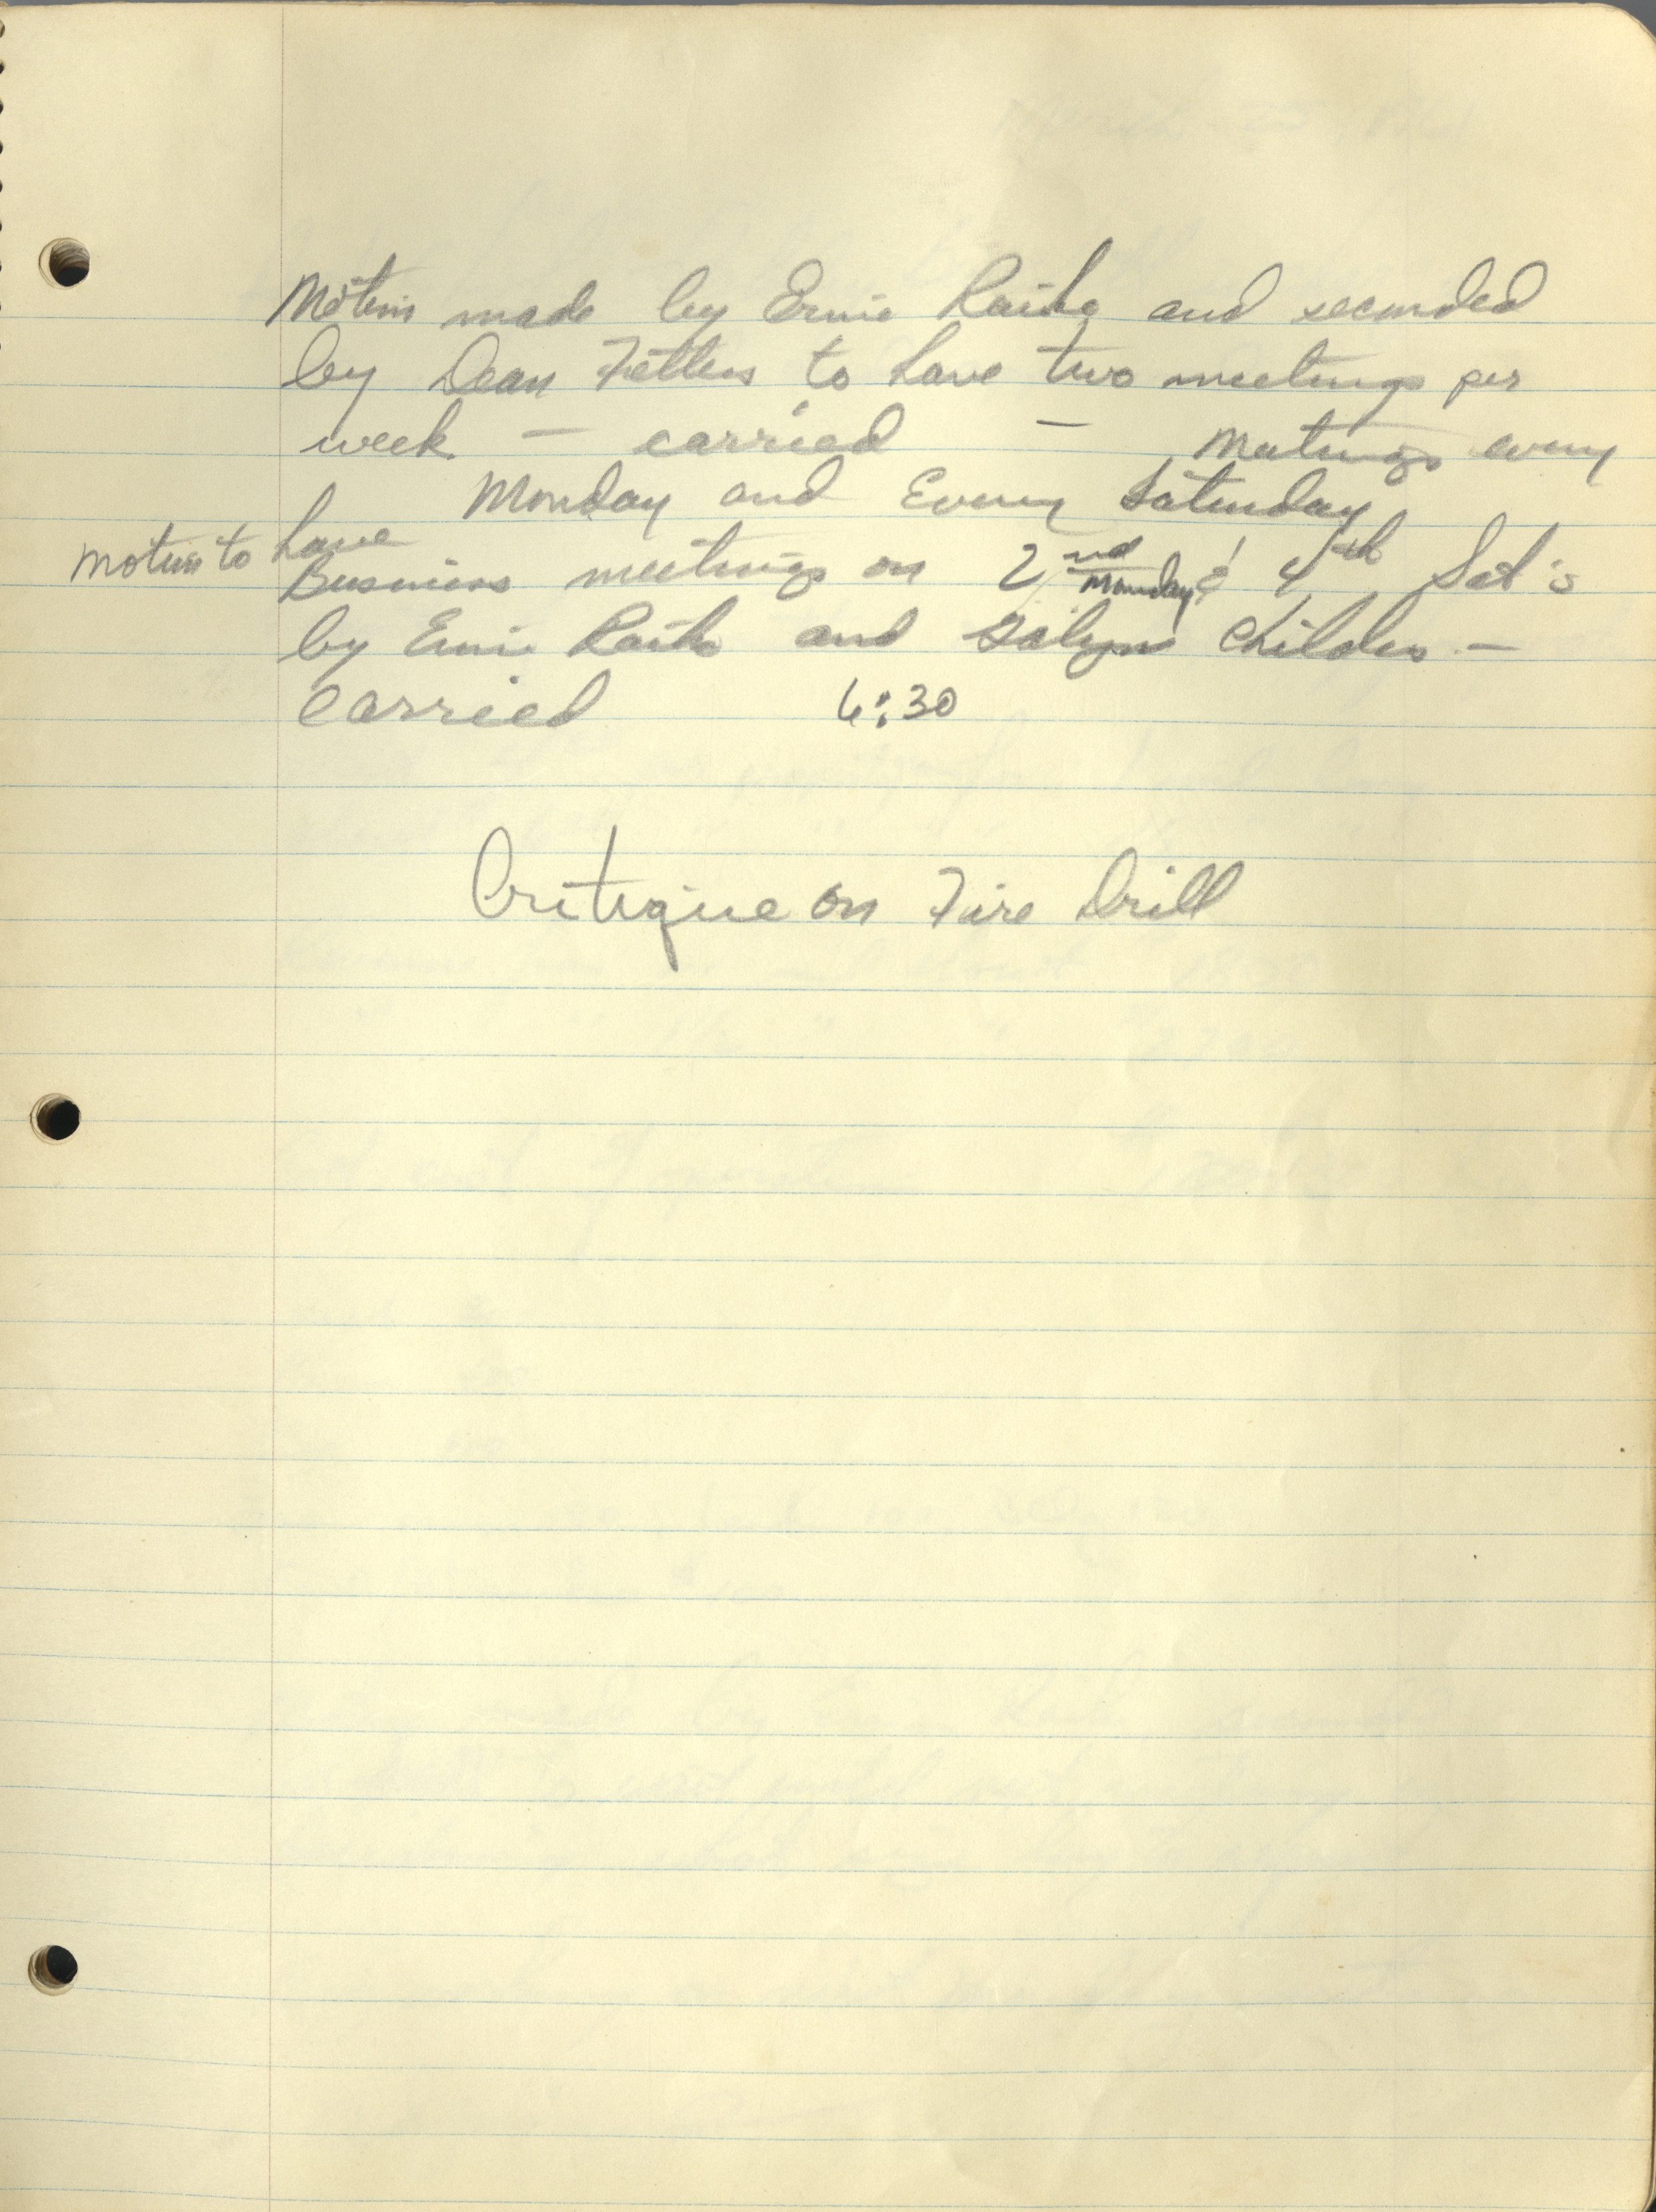 Motion made by Ernie Raithe and seconded
by Dean Fetters to have two meetings per
week – carried – Meetings every
Monday and Every Saturday
Motion to have
Business meetings on 2nd Monday & 4th Sat's
by Ernie Raith and Childes –
carried 6:30
Critique on Fire Drill